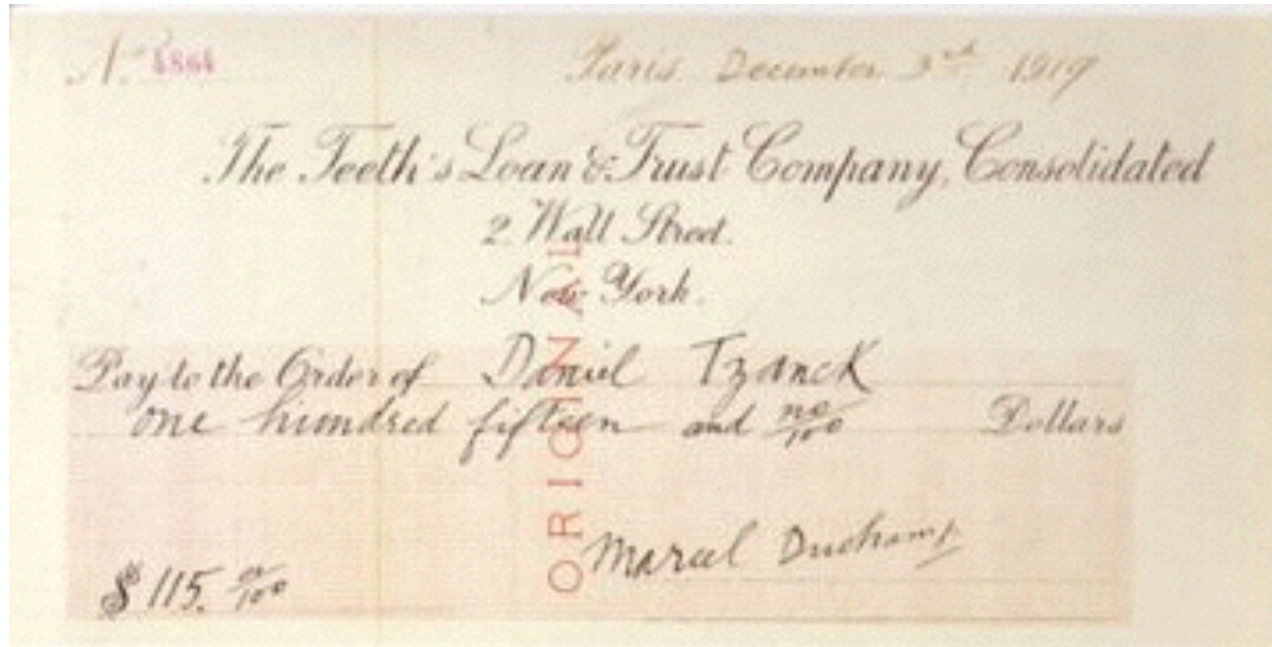 No. 4864 Paris December 3rd 1919
The Teeth's Loan & Trust Company, Consolidated
2 Wall Street.
New York.
Pay to the Order of Daniel Tzanck
one hundred fifteen and no/100 Dollars
ORIGINAL
Marcel Duchamp
$ 115. no/100